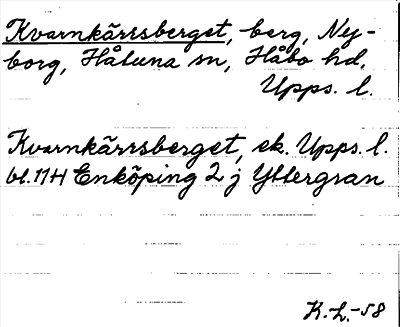 Kvarnkärrsberget, berg, Nej-
borg, Håtuna sn, Håbo hd,
Upps. l.
Kvarnkärrsberget, ek. Upps. l.
bl. 11H Enköping 2 j Yttergran
K.-L.-58